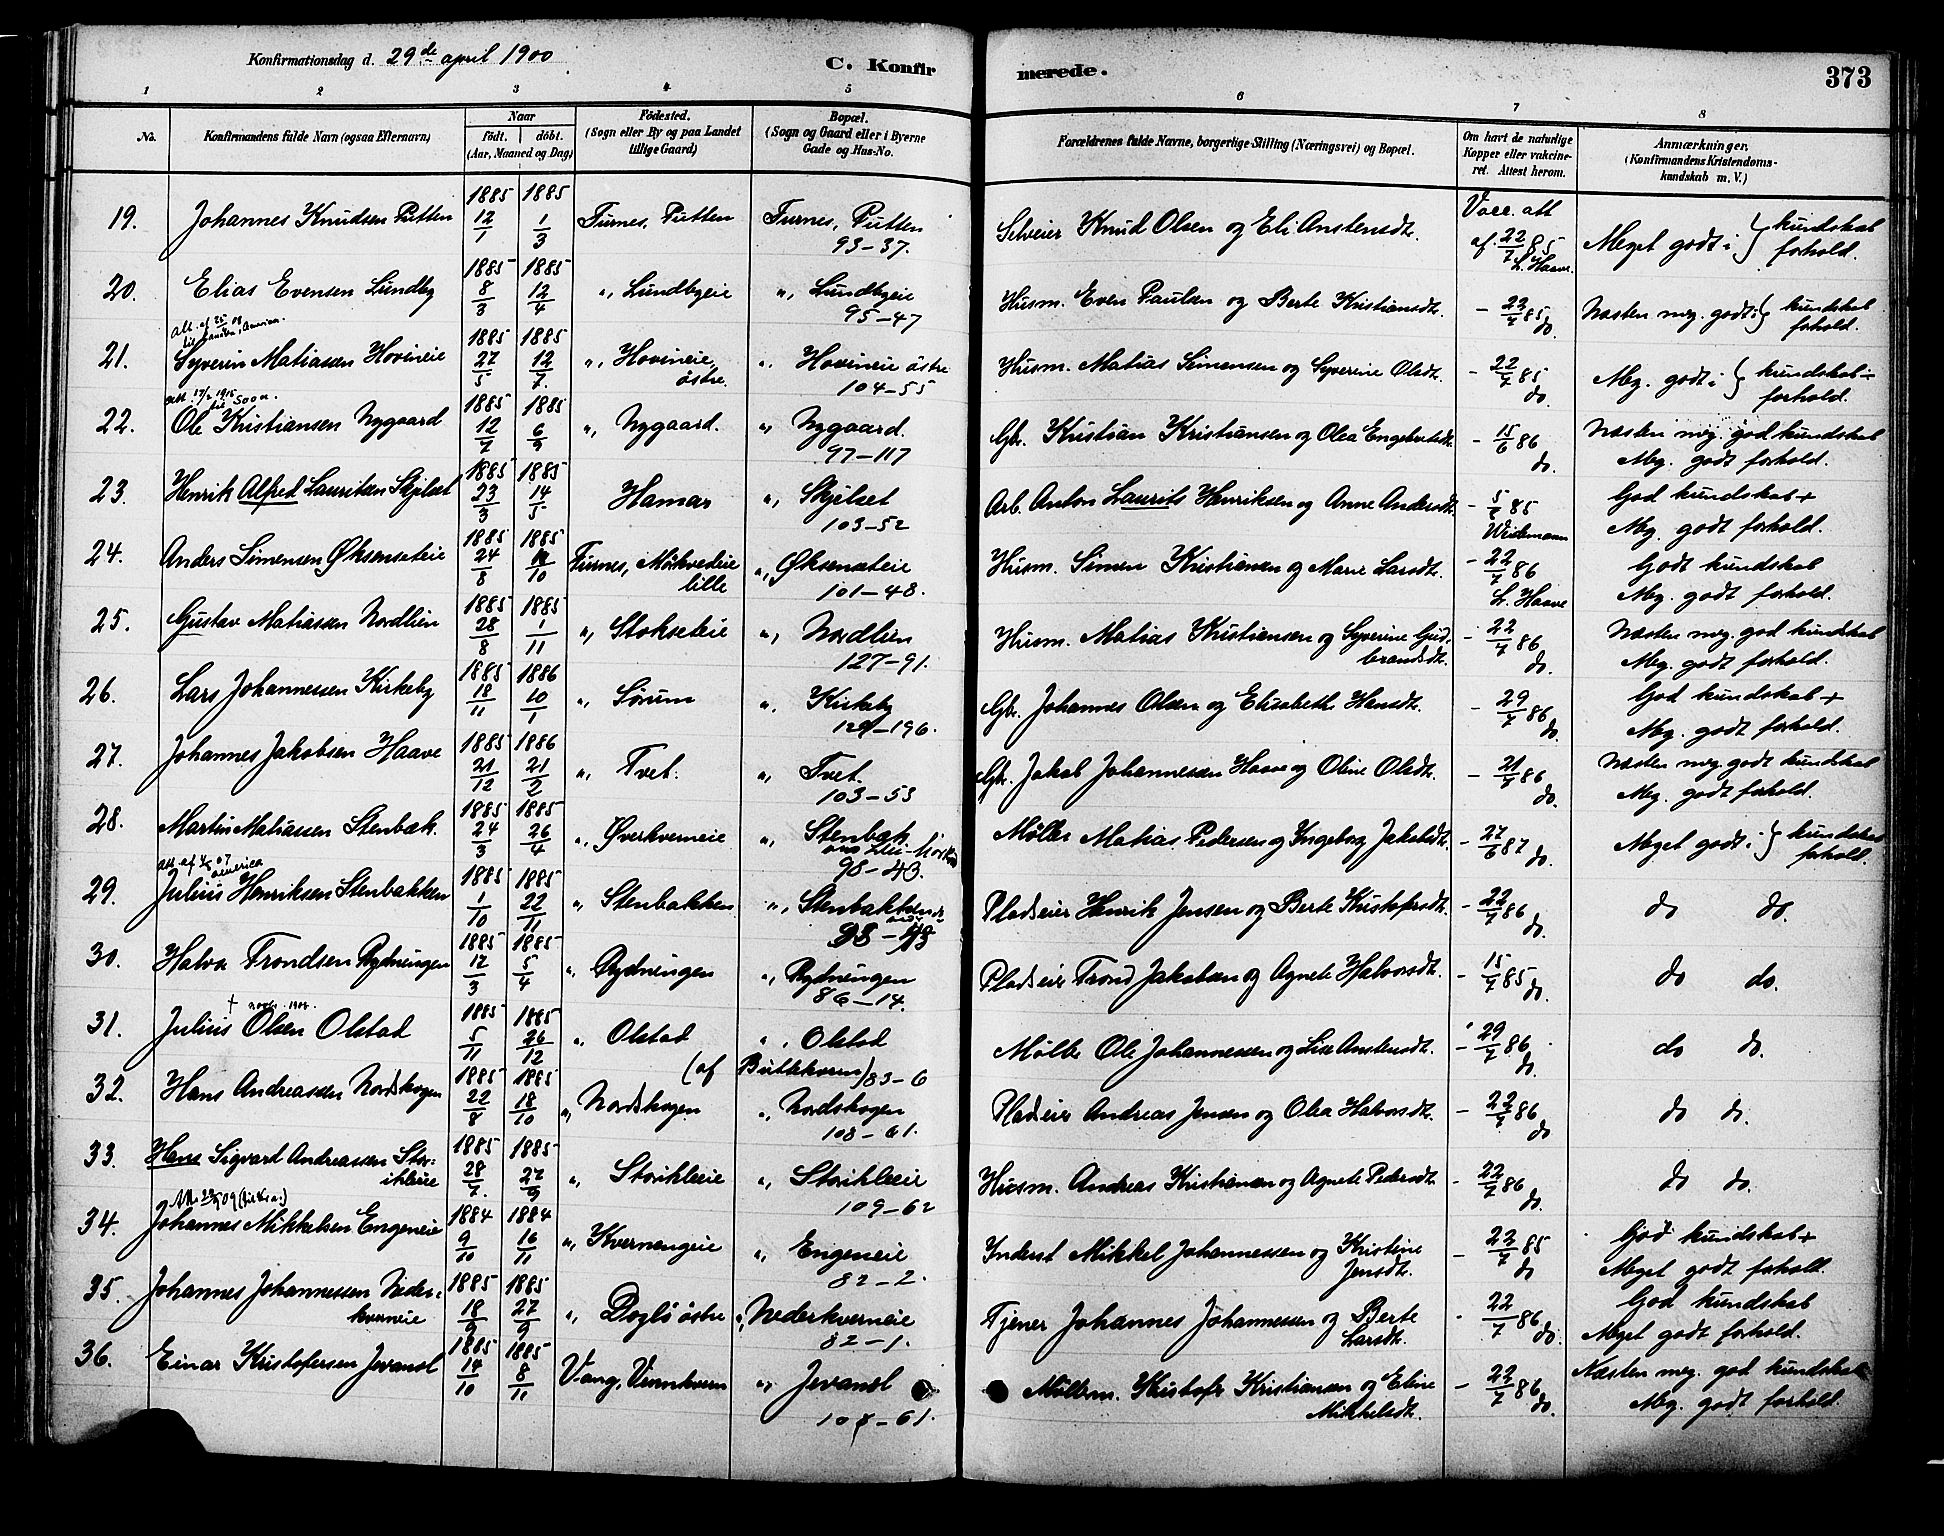 Konfirmationsdag d. 29de april 1900
C. Konfirmerede.
373
1 2 3 4 5 6 7 8
No.
Konfirmandens fulde Navn (ogsaa Efternavn)
Naar
födt. döbt.
(Aar, Maaned og Dag)
Födested.
(Sogn eller By og paa Landet tillige Gaard)
Bopæl.
(Sogn og Gaard eller i Byerne Gade og Hus-No.
Forældrenes fulde Navne, borgerlige Stilling (Næringsvei) og Bopæl.
Om havt de naturlige Kopper eller vakcineret. Attest herom.
Anmærkninger.
(Konfirmandens Kristendomskundskab m. V.)
19. Johannes Knudsen Putten 1885 12/1 1885 1/3 Furnes, Putten Furnes, Putten 93-37. Selveier Knud Olsen og Eli Anstensdt. Vacc. att af 22/7 85 L. Haave. Meget godt i } kundskab forhold.
20. Elias Evensen Lundby 1885 8/3 1885 12/4 " Lundbyeie " Lundbyeie 95-47 Husm. Even Paulsen og Berte Kristiansdt. - 22/7 85 do. Næsten meg. godt i } kundskab forhold.
21. Syverin Matiassen Hovineie 1885 27/5 1885 12/7 " Hovineie, östre. " Hovineie östre 104-55 Husm. Matias Simensen og Syverine Olsdt. - 22/7 85 do. Meg. godt i } kundskab + forhold.
22. Ole Kristiansen Nygaard 1885 12/7 1885 6/9 " Nygaard. " Nygaard. 97-117 Gbr. Kristian Kristiansen og Olea Engebretsdt. - 15/6 86 do. Næsten meg. god kundskab Meg. godt forhold.
23. Henrik Alfred Lauritsen Skjelset 1885 23/3 1885 14/5 Hamar " Skjelset 103-52 Arb. Anton Laurits Henriksen og Anne Andersdt. - 85 God kundskab + Meg. godt forhold.
24. Anders Simensen Öksensæteie 1885 24/8 1885 10 Furnes, Mörkvedeie lille " 101-48. Husm. Simen Kristiansen og Marie Larsdt. - 22/7 86 L. Haave Godt kundskab Meg. godt forhold.
25. Gustav Matiassen Nordlien 1885 28/8 1885 1/11 " Stokseteie " Nordlien 127-91. Husm. Matias Kristiansen og Syverine Gudbrandsdt. - 22/7 86 do. Næsten meg. god kundskab Meg. godt forhold.
26. Lars Johannessen Kirkeby 1885 18/11 1886 10/1 " Sörum " Kirkeby -196. Gbr. Johannes Olsen og Elisabeth Hansdt. - 29/7 86 do. God kundskab + Meg. godt forhold.
27. Johannes Jakobsen Haave 1885 21/12 1886 21/2 " Tvet. " Tvet. 103-53 Gbr. Jakob Johannessen Haave og Oline Olsdt. - 21/7 86 do. Næsten meg. godt kundskab Meg. godt forhold.
28. Martin Matiassen Stenbæk. 1885 24/3 1885 26/4 " Överkverneie " Stenbæk 98-40. Möller Matias Pedersen og Ingeborg Jakobsdt. - 27/6 87 do. Meget godt i } kundskab forhold.
29. Julius Henriksen Stenbakken 1885 1/10 1885 22/11 " Stenbakken " Stenbakken Pladseier Henrik Jensen og Berte Kristofersdt. - 22/7 86 do. do do.
30. Halvor Trondsen Rydningen 1885 12/3 1885 5/4 " Rydningen " Rydningen 86-14. Pladseier Trond Jakobsen og Agnete Halvorsdt. - 15/7 85 do. do do.
31. Julius Olsen Olstad 1885 5/11 1885 26/12 " Olstad " Olstad (af Buttekvern) 83-6 Möller Ole Johannessen og Lise Anstensdt. - 29/7 86 do. do do.
32. Hans Andreassen Nordskogen 1885 22/8 1885 18/10 " Nordskogen " Nordskogen 108-61. Pladseier Andreas Jensen og Olea Halvorsdt. - 22/7 86 do do do.
33. Hans Sigvart Andreassen Storihleeie 1885 28/7 1885 27/9 " Storihleeie " Storihleeie 109-62 Husm. Andreas Kristiansen og Agnete Pedersdt. - 22/7 86 do. do do.
34. Johannes Mikkelsen Engeneie 1884 9/10 1884 16/11 " Kvernengeie " Engeneie 82-2. Inderst Mikkel Johannessen og Kristine Jensdt. - 22/7 85 do God kundskab + Meget godt forhold.
35. Johannes Johannessen Nederkverneie 1885 18/9 1885 27/9 " Doglö östre " Nederkverneie 82-1. Tjener Johannes Johannessen og Berte Larsdt. - 22/7 86 do. God kundskab Meget godt forhold.
36. Einar Kristofersen Jevanol 1885 14/10 1885 8/11 Vang, " Jevanol -61. Möllem. Kristofer Kristiansen og Eline Mikkelsdt. - 22/7 86 do. Næsten meg. god kundskab Meg. godt forhold.